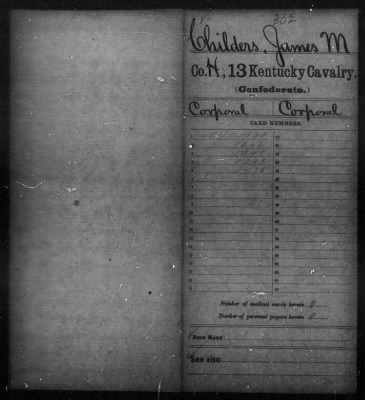 302
Childers, James M
Co. H, 13 Kentucky Cavalry.
(Confederate.)
Corporal Corporal
CARD NUMBERS.
Number of medical cards herein 0
Number of personal papers herein 0
BOOK MARK:
See also